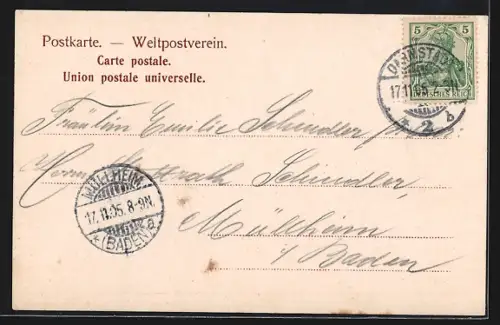 Postkarte. — Weltpostverein.
Carte postale.
Union postale universelle.
5 5
DARMSTADT
17.11.05
* 2 b
Fräulein Emilie Schindler
Schindler,
Müllheim
i/ Baden
MÜLLHEIM
17.11.05. 8-9N.
* (BADEN) a